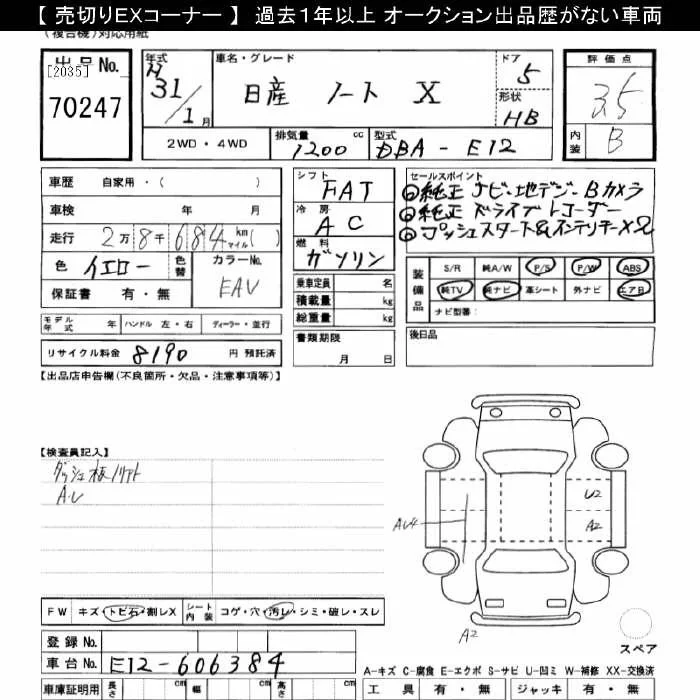 【 売切りEXコーナー 】 過去1年以上 オークション出品歴がない車両
(複合機)対応用紙
出品No.
[2035]
70247
年式
H
31/1月
車名・グレード
日産 ノート X
ドア
5
形状
HB
評価点
3.5
内装
B
2WD・4WD
排気量
1200 cc
型式
DBA - E12
車歴 自家用・( )
車検 年 月
走行 2万8千684 km マイル ( )
色 イエロー 色替
カラーNo.
EAV
保証書 有・無
シフト
FAT
冷房
AC
燃料
ガソリン
セールスポイント
◎純正ナビ・地デジ・Bカメラ
◎純正ドライブレコーダー
◎プッシュスタート&インテリキーX2
乗車定員 名
積載量 kg
総重量 kg
装備品
S/R 純A/W P/S P/W ABS
純TV 純ナビ 革シート 外ナビ エアB
ナビ型番:
モデル年式 年 ハンドル 左・右 ディーラー・並行
リサイクル料金 8190 円 預託済
書類期限
月 日
後日品
【出品店申告欄(不良箇所・欠品・注意事項等)】
【検査員記入】
A・U
U2
AU4
A2
A2
FW キズ・トビ石・割レX
シート内装 コゲ・穴・汚レ・シミ・破レ・スレ
スペア
登録No.
車台No. E12-606384
A-キズ C-腐食 E-エクボ S-サビ U-凹ミ W-補修 XX-交換済
車庫証明用 長さ cm 幅 cm 高さ cm
工具 有・無 ジャッキ 有・無